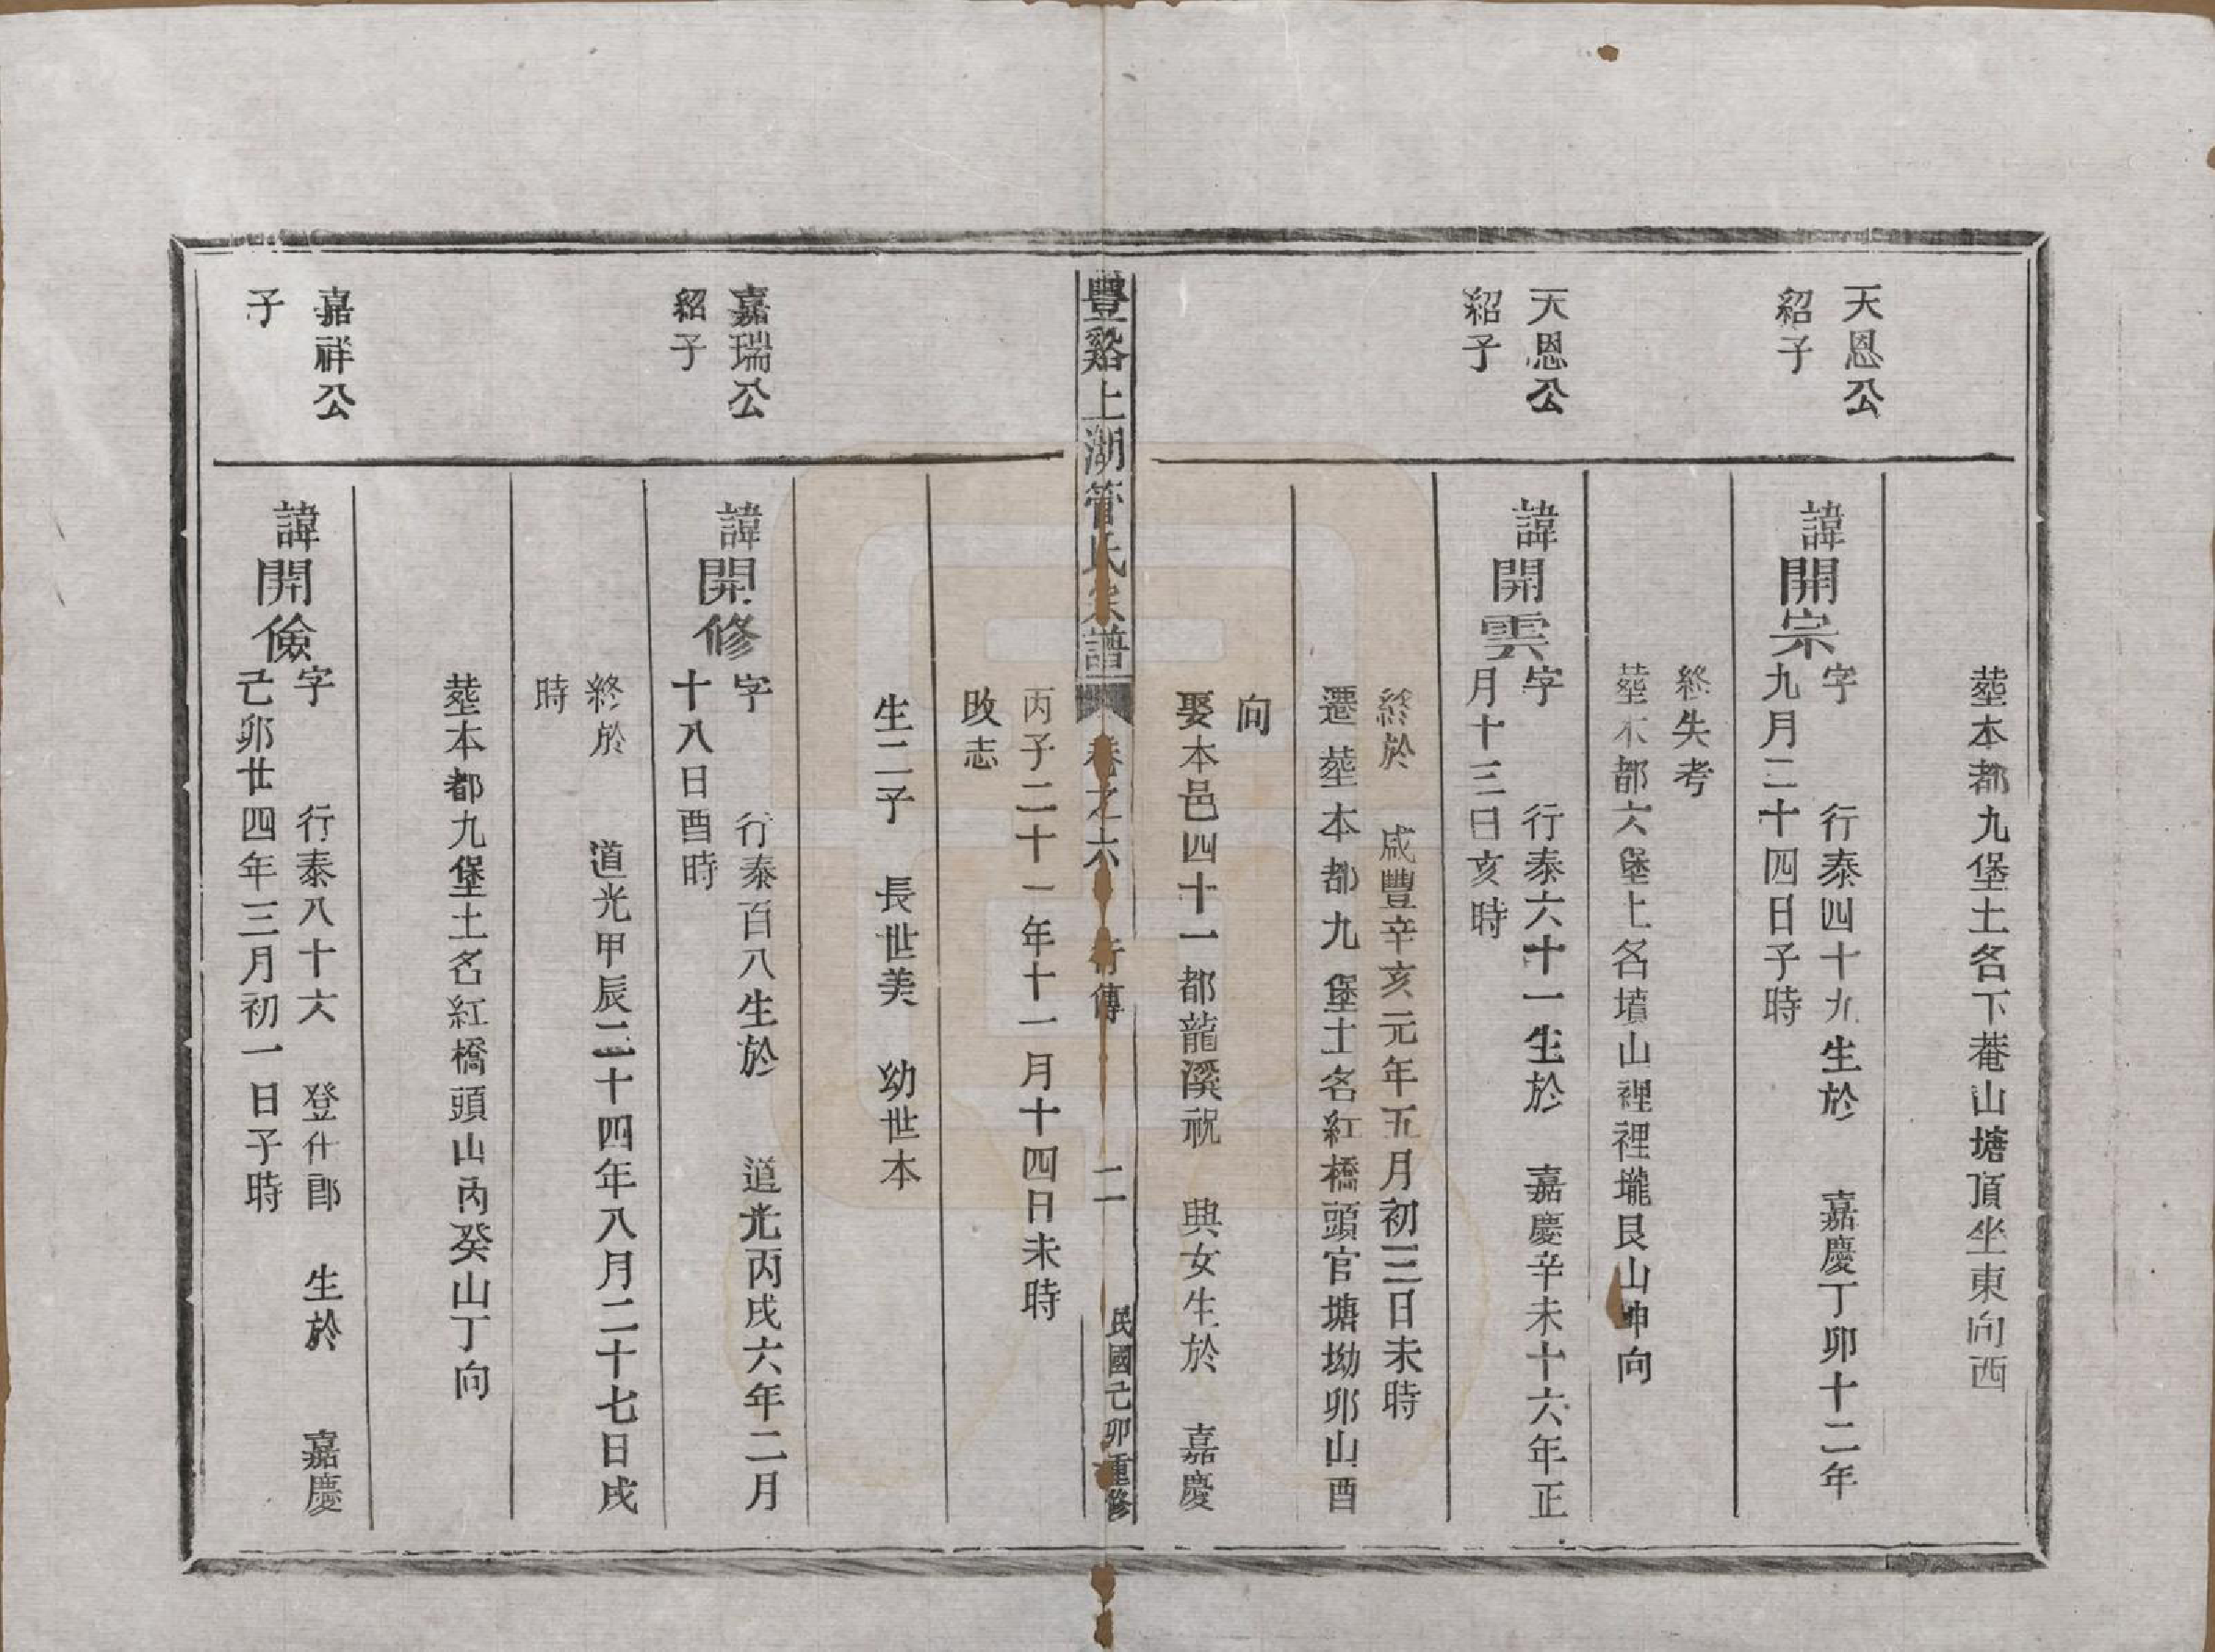 塟本都九堡土名下菴山塘頂坐東向西
天恩公
紹子
諱開宗
字　行泰四十九生於　嘉慶丁卯十二年
九月二十四日子時
終失考
塟本都六堡土名墳山裡裡壠艮山坤向
天恩公
紹子
諱開雲
字　行泰六十一生於　嘉慶辛未十六年正
月十三日亥時
終於　咸豐辛亥元年五月初三日未時
遷塟本都九堡土名紅橋頭官塘坳卯山酉
向
娶本邑四十一都龍溪祝　興女生於　嘉慶
豐谿上湖管氏宗譜　卷之六　行傳　二　民國己卯重修
丙子二十一年十一月十四日未時
改志
生二子　長世美　幼世本
嘉瑞公
紹子
諱開修
字　行泰百八生於　道光丙戌六年二月
十八日酉時
終於　道光甲辰二十四年八月二十七日戌
時
塟本都九堡土名紅橋頭山丙癸山丁向
嘉祥公
子
諱開儉
字　行泰八十六　登仕郎　生於　嘉慶
己卯廿四年三月初一日子時